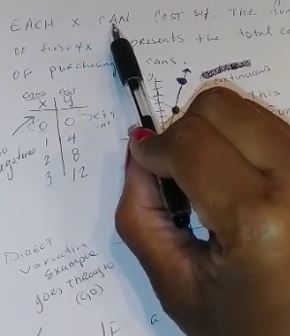 EACH X CAN COST $4. The fun
OF f(x)=4X presents the total co
OF purchasing cans.
cans cost
x y
y
continuous
0 0
1 4
this
2 8
3 12
Direct
Variation
Example
goes through
(0,0)